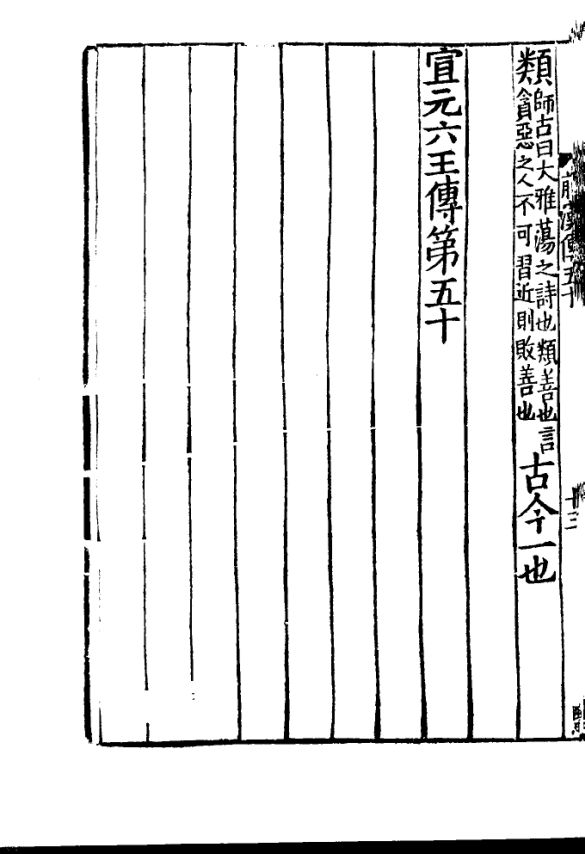 類師古曰大雅蕩之詩也類善也言貪惡之人不可習近則敗善也古今一也
宣元六王傳第五十
前漢傳五十
十三